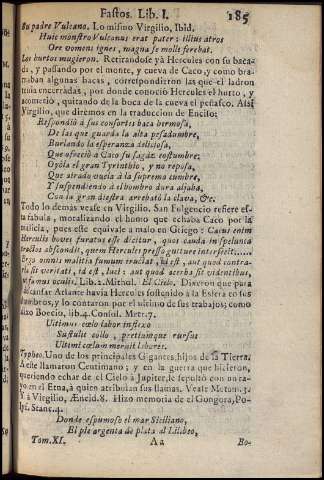 Fastos. Lib. I. 185
Su padre Vulcano. Lo mismo Virgilio, Ibid.
Huic monstro Vulcanus erat pater: illius atros
Ore vomens ignes, magna se mole ferebat.
Los hurtos mugieron. Retirandose yà Hercules con su baca-
da, y passando por el monte, y cueva de Caco, y como bra-
maban algunas bacas, correspondieron las que el ladron
tenia encerradas, por donde conociò Hercules el hurto, y
acometiò, quitando de la boca de la cueva el peñasco. Assi
Virgilio, que diremos en la traduccion de Enciso:
Respondiò à sus consortes baca hermosa,
De las que guarda la alta pesadumbre,
Burlando la esperanza deliciosa,
Que ofreciò à Caco su sagàz costumbre;
Oyòla el gran Tyrinthio, y no reposa,
Que atràs vuela à la suprema cumbre,
Y suspendiendo à el hombro dura aljaba,
Con la gran diestra arrebatò la clava, &c.
Todo lo demàs vease en Virgilio. San Fulgencio refiere es-
ta fabula, moralizando el humo que echaba Caco por la
malicia, pues este equivale a malo en Griego: Cacus enim
Herculis boves furatus esse dicitur, quos cauda in spelunca
tractos abscondit, quem Hercules presso gutture interfecit
Ergo omnis malitia fumum eructat, id est, aut quod contra-
rium sit veritati, id est, luci: aut quod acerba sit videntibus,
ut fumus oculis. Lib. 2. Mithol. El Cielo. Dixeron que para
descansar Atlante havia Hercules sostenido à la Esfera so sus
hombros, y lo contaron por el ultimo de sus trabajos; como
dixo Boecio, lib. 4. Consol. Metr. 7.
Ultimus cœlo labor inflexo
Sustulit collo, pretiumque rursus
Ultimi cœlum meruit laboris.
Typheo. Uno de los principales Gigantes, hijos de la Tierra.
A este llamaron Centimano; y en la guerra que hicieron,
queriendo echar de el Cielo à Jupiter, le sepultò con un ra-
yo en el Etna, à quien atribuian sus llamas. Veale Metom. 5.
Y à Virgilio, Æneid. 8. Hizo memoria de el Gongora, Po-
lyf. Stanc. 4.
Donde espumoso el mar Siciliano,
El pie argenta de plata al Lilibeo,
Tom. XI. Aa Bo-